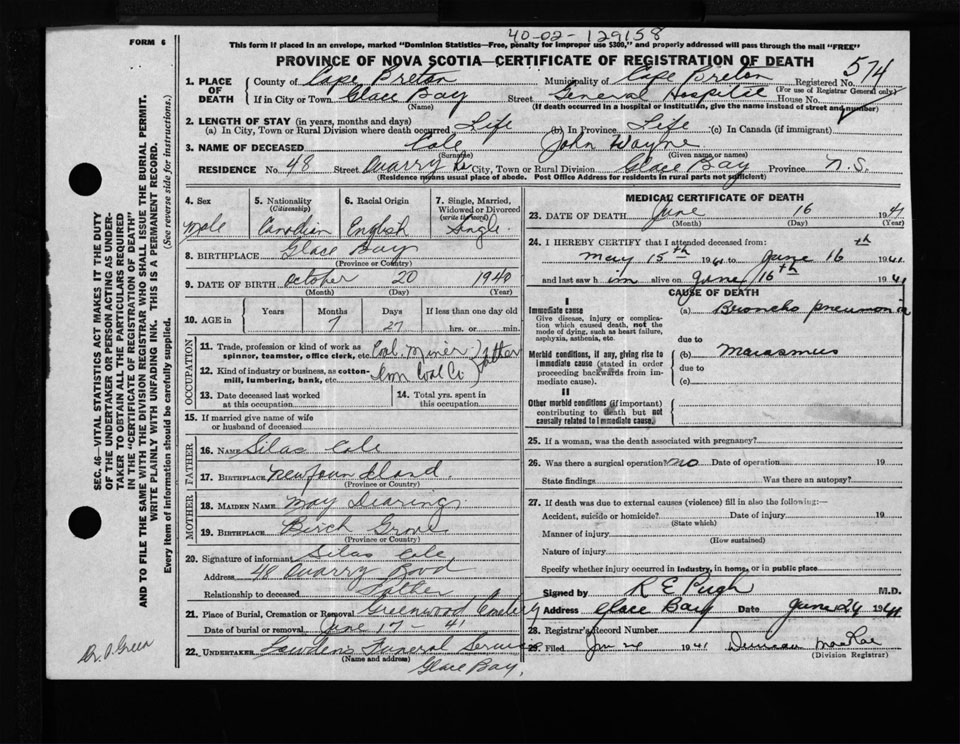 40-02-129158
FORM 6
This form if placed in an envelope, marked "Dominion Statistics—Free, penalty for improper use $300," and properly addressed will pass through the mail "FREE"
PROVINCE OF NOVA SCOTIA—CERTIFICATE OF REGISTRATION OF DEATH
574
SEC. 46—VITAL STATISTICS ACT MAKES IT THE DUTY
OF THE UNDERTAKER OR PERSON ACTING AS UNDER-
TAKER TO OBTAIN ALL THE PARTICULARS REQUIRED
IN THE "CERTIFICATE OF REGISTRATION OF DEATH"
AND TO FILE THE SAME WITH THE DIVISION REGISTRAR WHO SHALL ISSUE THE BURIAL PERMIT.
WRITE PLAINLY WITH UNFADING INK. THIS IS A PERMANENT RECORD.
Every item of information should be carefully supplied. (See reverse side for instructions.)
Dr. D. Green
1. PLACE OF DEATH County of Cape Breton Municipality of Cape Breton Registered No.
(For use of Registrar General only)
If in City or Town Glace Bay Street General Hospital House No.
(Name) (If death occurred in a hospital or institution, give the name instead of street and number)
2. LENGTH OF STAY (in years, months and days)
(a) In City, Town or Rural Division where death occurred Life (b) In Province Life (c) In Canada (if immigrant)
3. NAME OF DECEASED Cole John Wayne
(Surname) (Given name or names)
RESIDENCE No. 48 Street Quarry City, Town or Rural Division Glace Bay Province N.S.
(Residence means usual place of abode. Post Office Address for residents in rural parts not sufficient)
4. Sex 5. Nationality (Citizenship) 6. Racial Origin 7. Single, Married, Widowed or Divorced (write the word)
male Canadian English Single
8. BIRTHPLACE Glace Bay
(Province or Country)
9. DATE OF BIRTH October 20 1940
(Month) (Day) (Year)
10. AGE in Years Months Days If less than one day old
7 27 hrs. or min.
OCCUPATION
11. Trade, profession or kind of work as spinner, teamster, office clerk, etc. Coal Miner Father
12. Kind of industry or business, as cotton-mill, lumbering, bank, etc. Dom Coal Co
13. Date deceased last worked at this occupation
14. Total yrs. spent in this occupation
15. If married give name of wife or husband of deceased
FATHER
16. NAME Silas Cole
17. BIRTHPLACE Newfoundland
(Province or Country)
MOTHER
18. MAIDEN NAME May Dearing
19. BIRTHPLACE Birch Grove
(Province or Country)
20. Signature of informant Silas Cole
Address 48 Quarry Road
Relationship to deceased Father
21. Place of Burial, Cremation or Removal Greenwood Cemetery
Date of burial or removal June 17 - 41
22. UNDERTAKER Funeral Service
(Name and address) Glace Bay,
MEDICAL CERTIFICATE OF DEATH
23. DATE OF DEATH June 16 1941
(Month) (Day) (Year)
24. I HEREBY CERTIFY that I attended deceased from:
May 15th 1941 to June 16th 1941
and last saw him alive on June 16th 1941
CAUSE OF DEATH
I
Immediate cause
Give disease, injury or complication which caused death, not the mode of dying, such as heart failure, asphyxia, asthenia, etc.
(a) Broncho pneumonia
due to
Morbid conditions, if any, giving rise to immediate cause (stated in order proceeding backwards from immediate cause).
(b) Marasmus
due to
(c)
II
Other morbid conditions (if important) contributing to death but not causally related to immediate cause.
25. If a woman, was the death associated with pregnancy?
26. Was there a surgical operation? no Date of operation 19
State findings Was there an autopsy?
27. If death was due to external causes (violence) fill in also the following:—
Accident, suicide or homicide? Date of injury 19
(State which)
Manner of injury
(How sustained)
Nature of injury
Specify whether injury occurred in industry, in home, or in public place
Signed by R E Pugh M.D.
Address Glace Bay Date June 24 1941
28. Registrar's Record Number
29. Filed Jun 24 1941 Duncan MacRae
(Division Registrar)